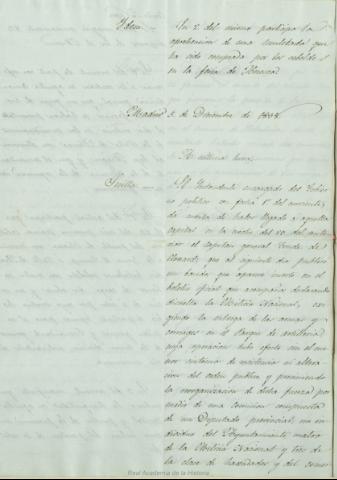 Idem — En 2 del mismo participa la
aprehension de una cantidad que
ha sido recuperada por los rebeldes
en la feria de
Madrid 5 de Diciembre de 1838
A ultima hora.
Sevilla — El Intendente encargado del Gobier-
no politico con fecha 1º del corriente,
da cuenta de haber llegado á aquella
capital en la noche del 29 del ante-
rior el capitan general Conde de
Clonard; que al siguiente dia publicó
un bando que aparece inserto en el
boletin oficial que acompaña declarando
disuelta la Milicia Nacional, exi-
giendo la entrega de las armas y
correages en el Parque de artilleria
cuya operacion tubo efecto sin el me-
nor sintoma de resistencia ni altera-
cion del orden publico y previniendo
la reorganizacion de dicha fuerza por
medio de una comision compuesta
de un Diputado provincial, un in-
dividuo del Ayuntamiento, cuatro
de la Milicia Nacional y tres de
la clase de hacendados y del comer
Real Academia de la Historia